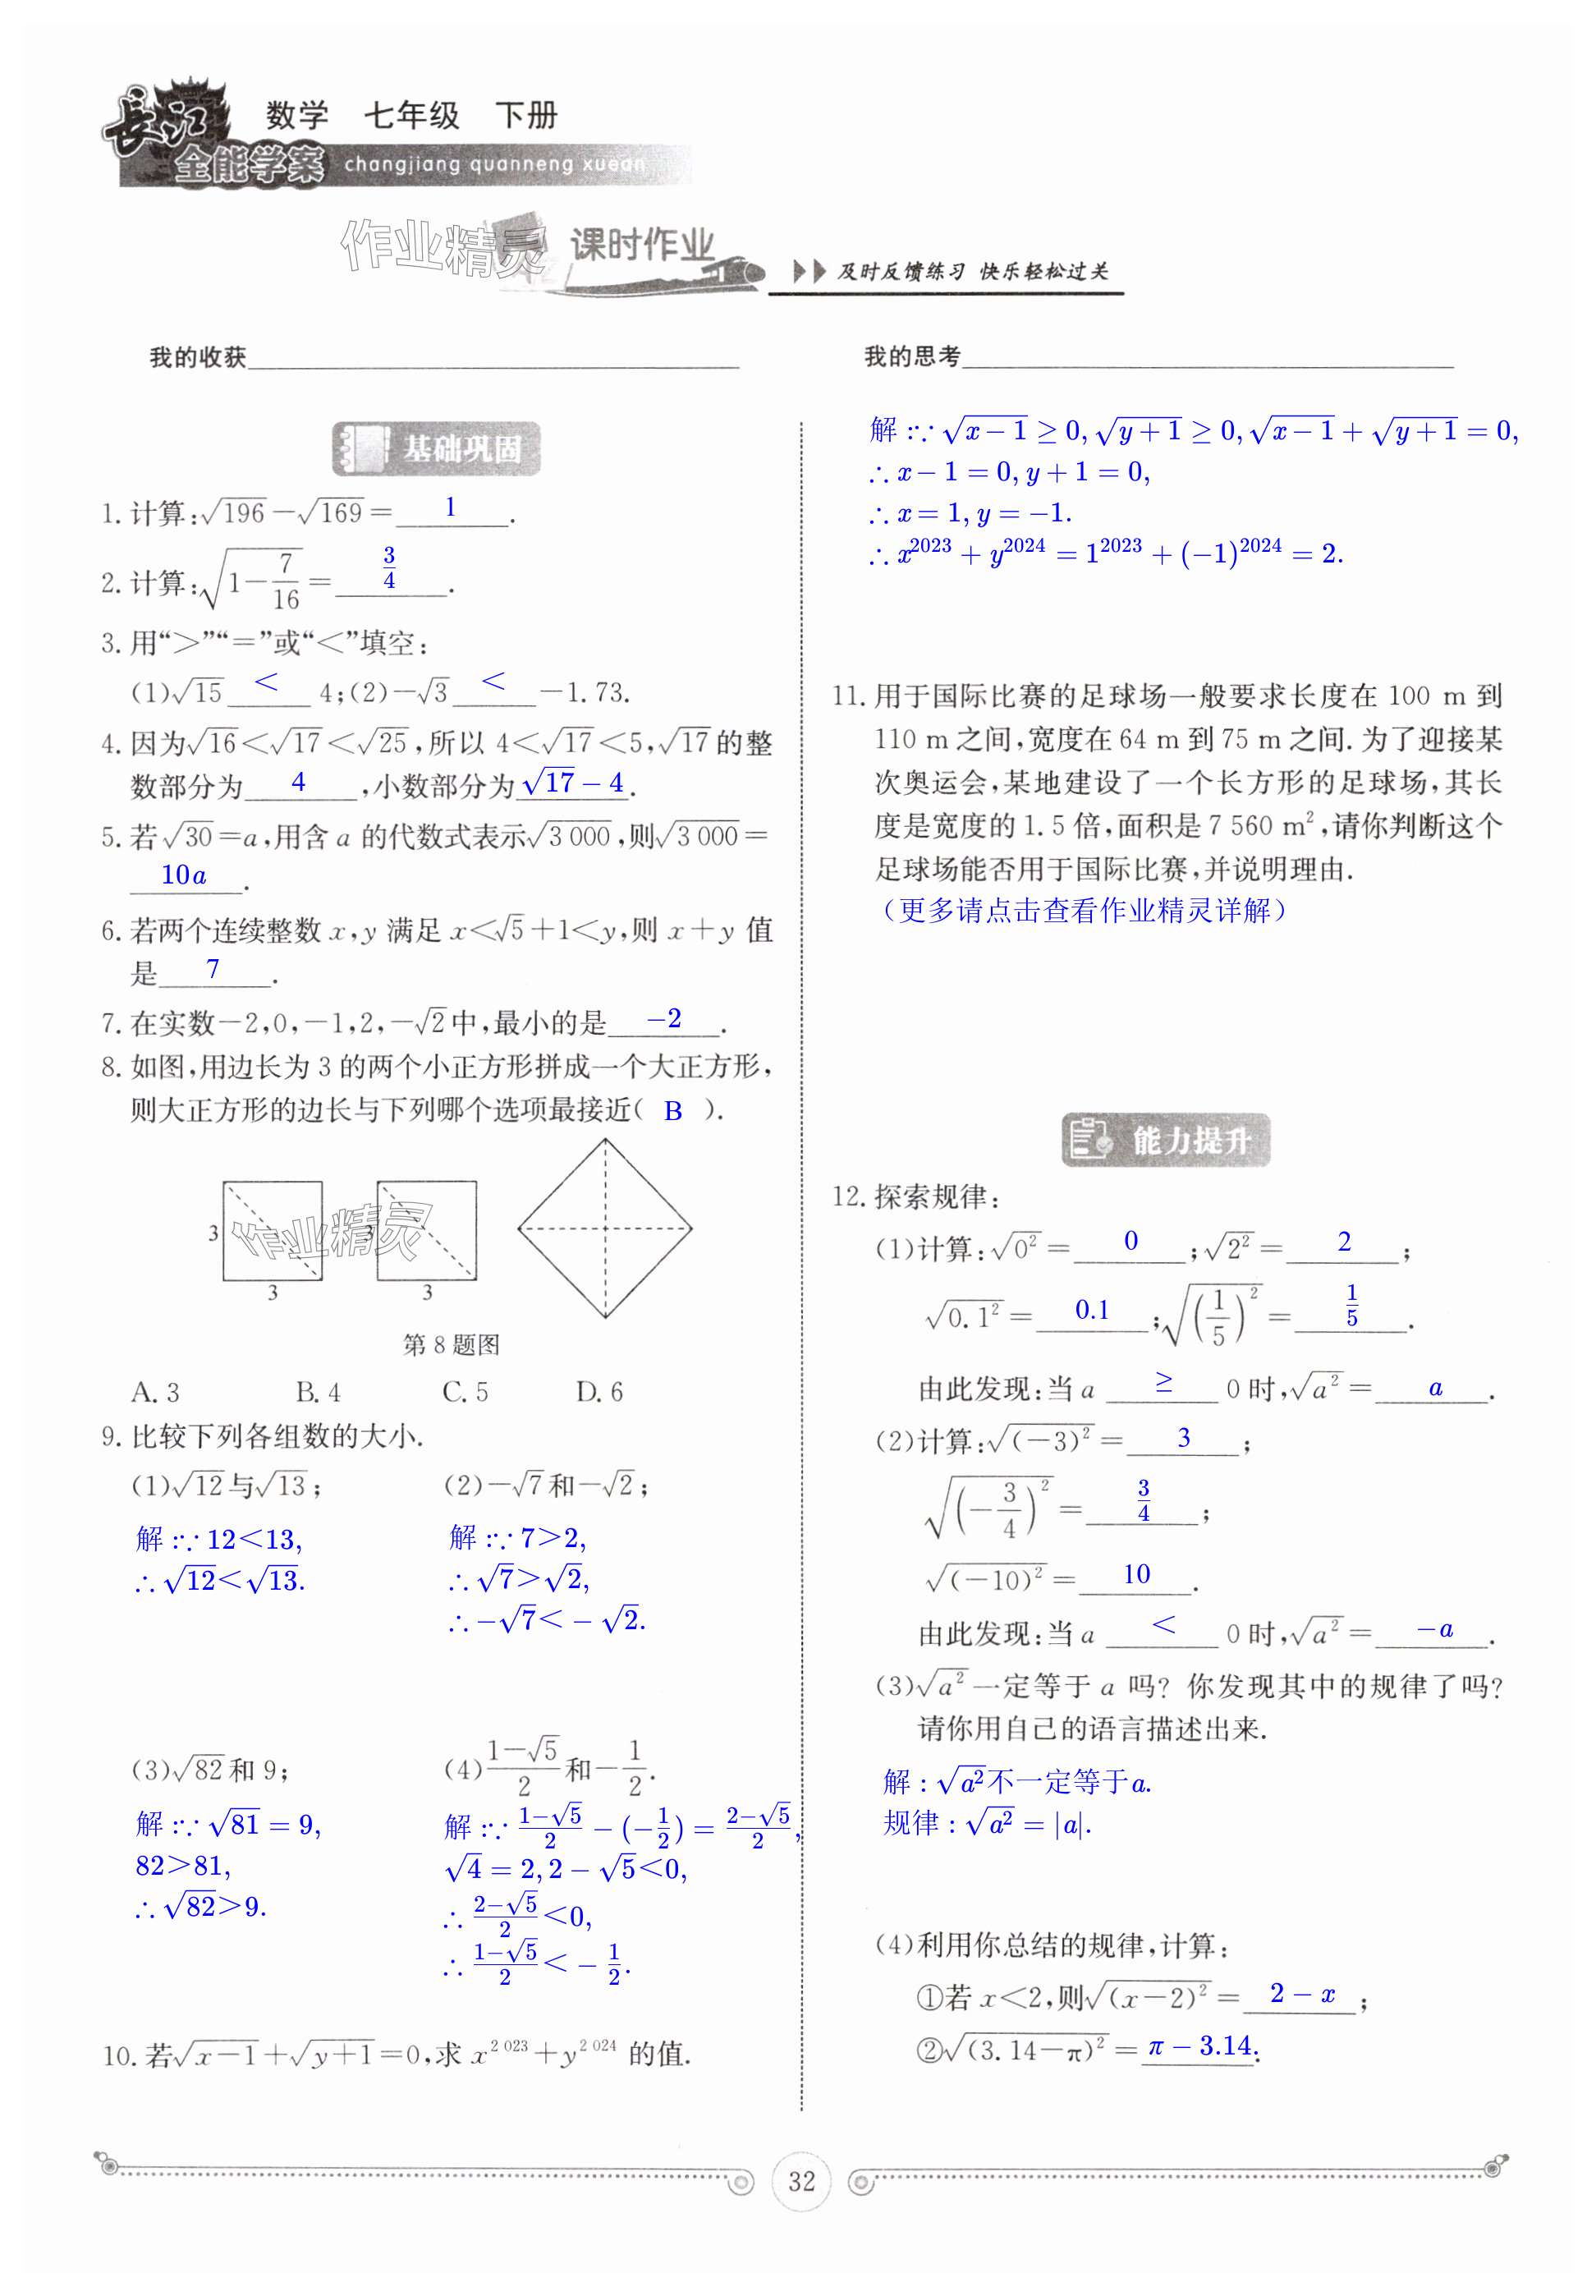 长江 数学 七年级 下册
全能学案 changjiang quanneng xuean
作业精灵 课时作业 及时反馈练习 快乐轻松过关
我的收获
我的思考
基础巩固
1. 计算:√196－√169＝ 1 .
2. 计算:√(1－7/16)＝ 3/4 .
3. 用“＞”“＝”或“＜”填空:
(1)√15 ＜ 4;(2)－√3 ＜ －1.73.
4. 因为√16＜√17＜√25,所以 4＜√17＜5,√17的整
数部分为 4 ,小数部分为 √17－4 .
5. 若√30＝a,用含 a 的代数式表示√3 000,则√3 000＝
10a .
6. 若两个连续整数 x,y 满足 x＜√5＋1＜y,则 x＋y 值
是 7 .
7. 在实数－2,0,－1,2,－√2中,最小的是 －2 .
8. 如图,用边长为 3 的两个小正方形拼成一个大正方形,
则大正方形的边长与下列哪个选项最接近( B ).
3 3
作业精灵
3 3
第 8 题图
A. 3 B. 4 C. 5 D. 6
9. 比较下列各组数的大小.
(1)√12与√13; (2)－√7和－√2;
解:∵12＜13, 解:∵7＞2,
∴√12＜√13. ∴√7＞√2,
∴－√7＜－√2.
(3)√82和 9; (4)(1－√5)/2和－1/2.
解:∵√81＝9, 解:∵(1－√5)/2－(－1/2)＝(2－√5)/2,
82＞81, √4＝2,2－√5＜0,
∴√82＞9. ∴(2－√5)/2＜0,
∴(1－√5)/2＜－1/2.
10. 若√(x－1)＋√(y＋1)＝0,求 x²⁰²³＋y²⁰²⁴ 的值.
解:∵√(x－1)≥0,√(y＋1)≥0,√(x－1)＋√(y＋1)＝0,
∴x－1＝0,y＋1＝0,
∴x＝1,y＝－1.
∴x²⁰²³＋y²⁰²⁴＝1²⁰²³＋(－1)²⁰²⁴＝2.
11. 用于国际比赛的足球场一般要求长度在 100 m 到
110 m 之间,宽度在 64 m 到 75 m 之间. 为了迎接某
次奥运会,某地建设了一个长方形的足球场,其长
度是宽度的 1.5 倍,面积是 7 560 m²,请你判断这个
足球场能否用于国际比赛,并说明理由.
（更多请点击查看作业精灵详解）
能力提升
12. 探索规律:
(1)计算:√0²＝ 0 ;√2²＝ 2 ;
√0.1²＝ 0.1 ;√(1/5)²＝ 1/5 .
由此发现:当 a ≥ 0 时,√a²＝ a .
(2)计算:√(－3)²＝ 3 ;
√(－3/4)²＝ 3/4 ;
√(－10)²＝ 10 .
由此发现:当 a ＜ 0 时,√a²＝ －a .
(3)√a²一定等于 a 吗? 你发现其中的规律了吗?
请你用自己的语言描述出来.
解:√a²不一定等于a.
规律:√a²＝|a|.
(4)利用你总结的规律,计算:
①若 x＜2,则√(x－2)²＝ 2－x ;
②√(3.14－π)²＝ π－3.14.
32